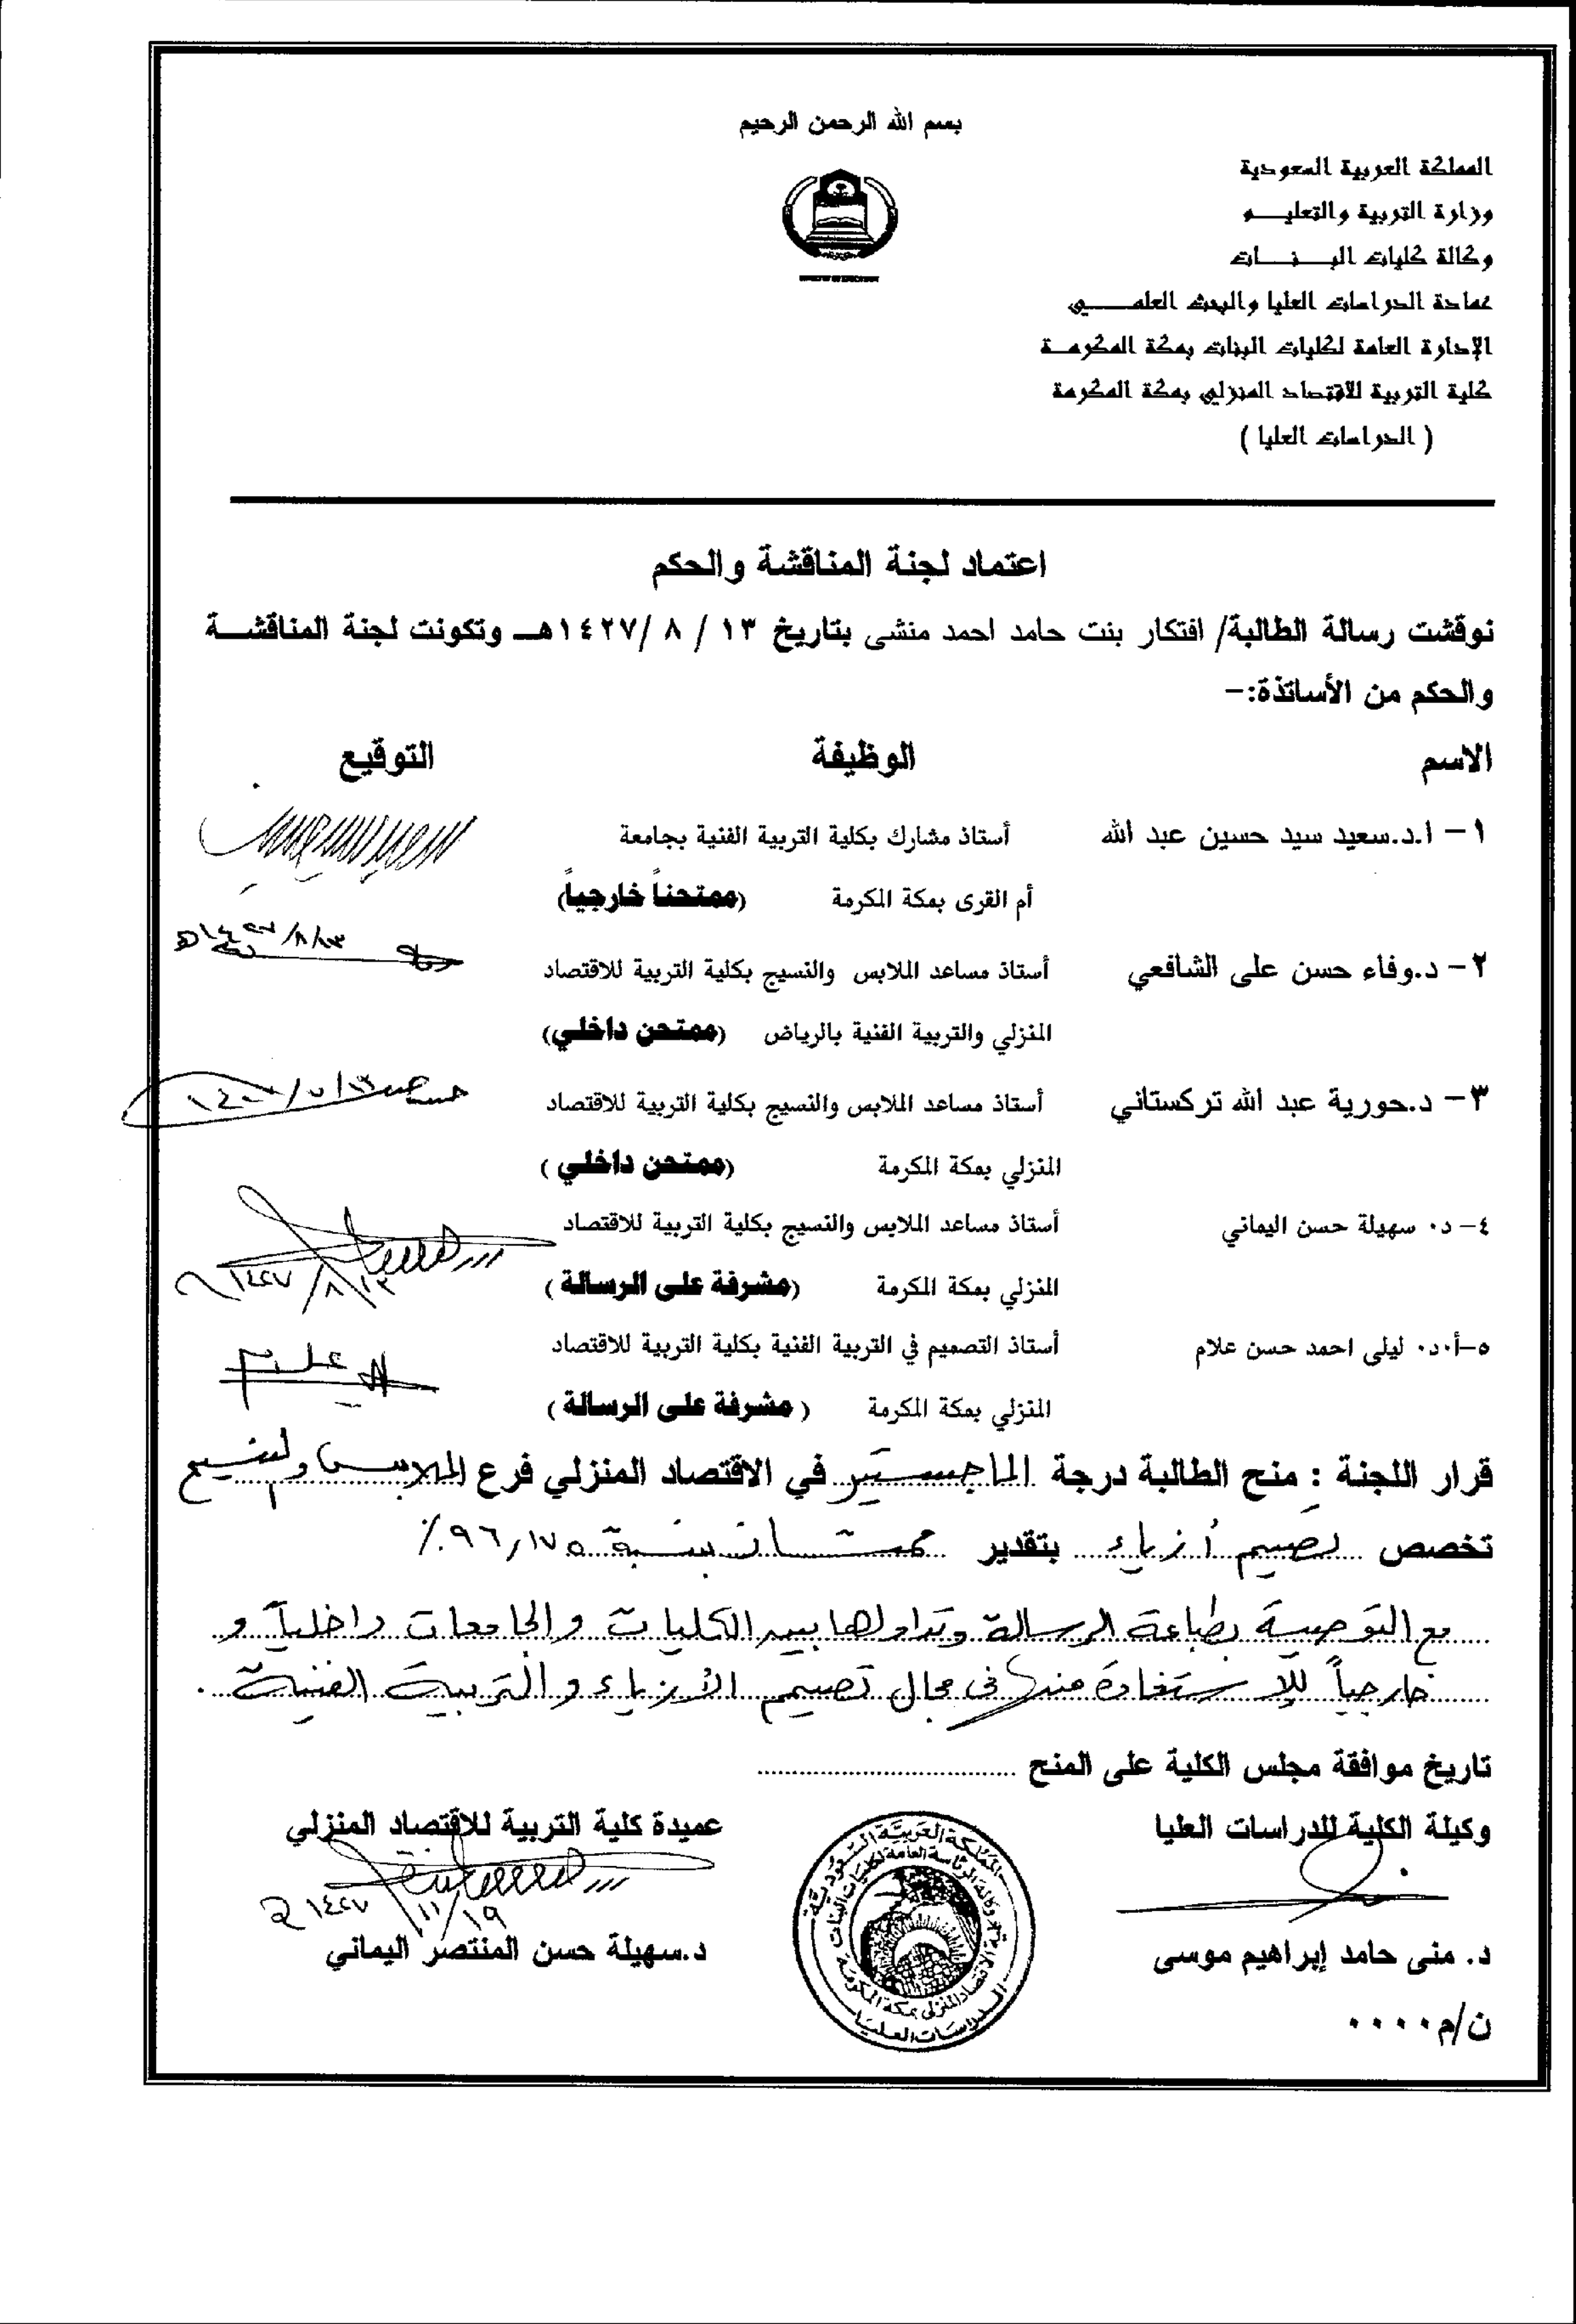 بسم الله الرحمن الرحيم
المملكة العربية السعودية
وزارة التربية والتعليـــم
وكالة كليات البـــنـــات
عمادة الدراسات العليا والبحث العلمـــي
الإدارة العامة لكليات البنات بمكة المكرمــة
كلية التربية للاقتصاد المنزلي بمكة المكرمة
( الدراسات العليا )
اعتماد لجنة المناقشة والحكم
نوقشت رسالة الطالبة/ افتكار بنت حامد احمد منشى بتاريخ ١٣ / ٨ /١٤٢٧هـ وتكونت لجنة المناقشــة
والحكم من الأساتذة:-
الاسم الوظيفة التوقيع
١- ا.د.سعيد سيد حسين عبد الله أستاذ مشارك بكلية التربية الفنية بجامعة
أم القرى بمكة المكرمة (ممتحناً خارجياً)
١٤٢٧/٨/١٣هـ
٢- د.وفاء حسن على الشافعي أستاذ مساعد الملابس والنسيج بكلية التربية للاقتصاد
المنزلي والتربية الفنية بالرياض (ممتحن داخلي)
٣- د.حورية عبد الله تركستاني أستاذ مساعد الملابس والنسيج بكلية التربية للاقتصاد
المنزلي بمكة المكرمة (ممتحن داخلي )
٤- د٠ سهيلة حسن اليماني أستاذ مساعد الملابس والنسيج بكلية التربية للاقتصاد
المنزلي بمكة المكرمة (مشرفة على الرسالة )
١٤٢٧/٨/١٣
٥-أ٠د٠ ليلى احمد حسن علام أستاذ التصميم في التربية الفنية بكلية التربية للاقتصاد
المنزلي بمكة المكرمة ( مشرفة على الرسالة )
قرار اللجنة : منح الطالبة درجة الماجستير في الاقتصاد المنزلي فرع الملابس والنسيج
تخصص تصميم أزياء بتقدير ممتاز بنسبة ٩٦,١٧٥٪
مع التوصية بطباعة الرسالة وتداولها بين الكليات والجامعات داخلياً و
خارجياً للاستفادة منها في مجال تصميم الأزياء والتربية الفنية .
تاريخ موافقة مجلس الكلية على المنح ......................................
وكيلة الكلية للدراسات العليا عميدة كلية التربية للاقتصاد المنزلي
١٤٢٧/١١/١٩
د. منى حامد إبراهيم موسى د.سهيلة حسن المنتصر اليماني
ن/م٠٠٠٠
المملكة العربية السعودية
الدراسات العليا